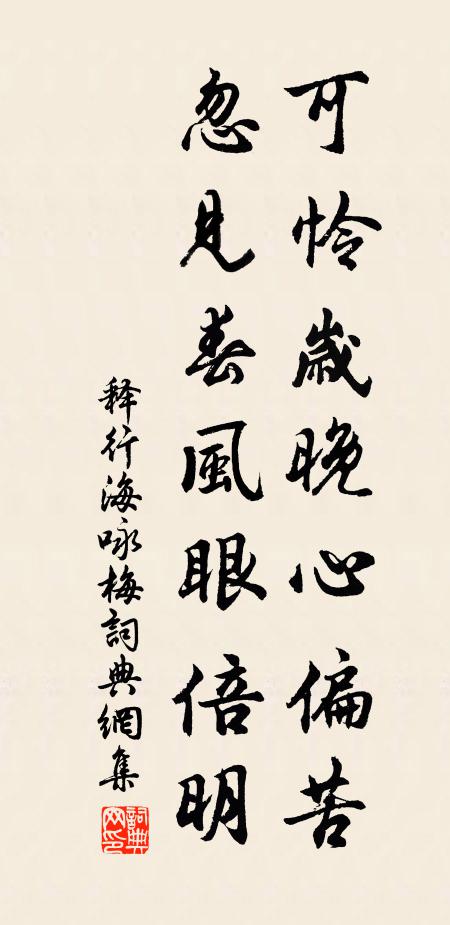 可怜歲晚心偏苦
忽見春風眼倍明
释行海咏梅詞典網集
詞典网印